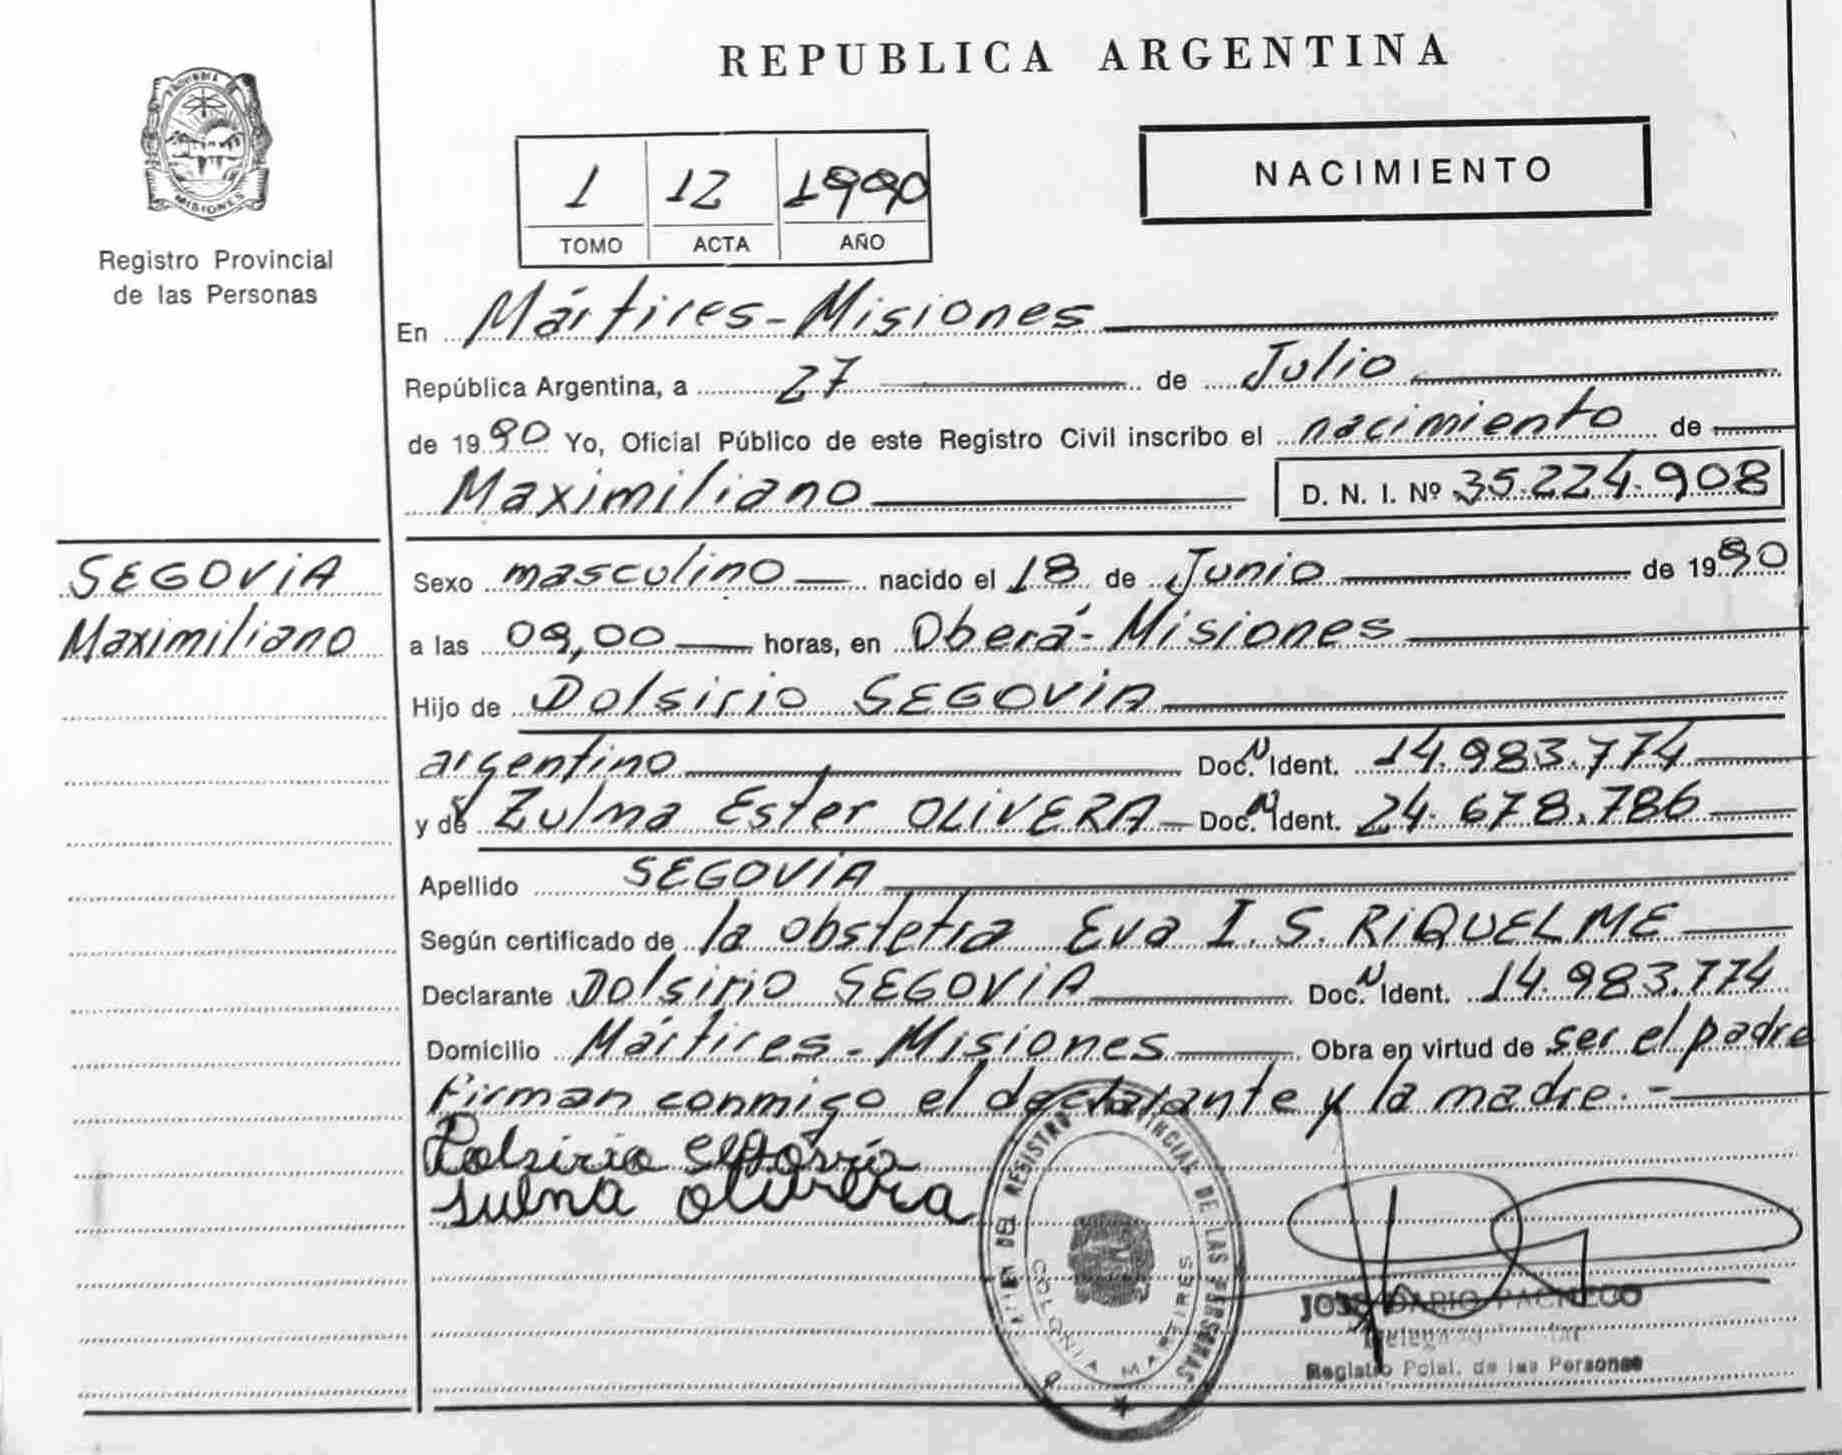 REPUBLICA ARGENTINA
MISIONES
Registro Provincial
de las Personas
1 12 1990
TOMO ACTA AÑO
NACIMIENTO
En Mártires-Misiones
República Argentina, a 27 de Julio
de 1990 Yo, Oficial Público de este Registro Civil inscribo el nacimiento de
Maximiliano D. N. I. Nº 35.224.908
SEGOVIA
Maximiliano
Sexo masculino nacido el 18 de Junio de 1990
a las 09,00 horas, en Oberá-Misiones
Hijo de Dolsirio SEGOVIA
argentino Doc. N Ident. 14.983.774
y de Zulma Ester OLIVERA Doc. N Ident. 24.678.786
Apellido SEGOVIA
Según certificado de la obstetra Eva I. S. RIQUELME
Declarante Dolsirio SEGOVIA Doc. N Ident. 14.983.774
Domicilio Mártires-Misiones Obra en virtud de ser el padre
Firman conmigo el declarante y la madre.-
Dolsirio Segovia
Sulma Olivera
DEL REGISTRO PROVINCIAL DE LAS PERSONAS
COLONIA MARTIRES
JOSE DARIO PACHECO
Registro Pcial. de las Personas